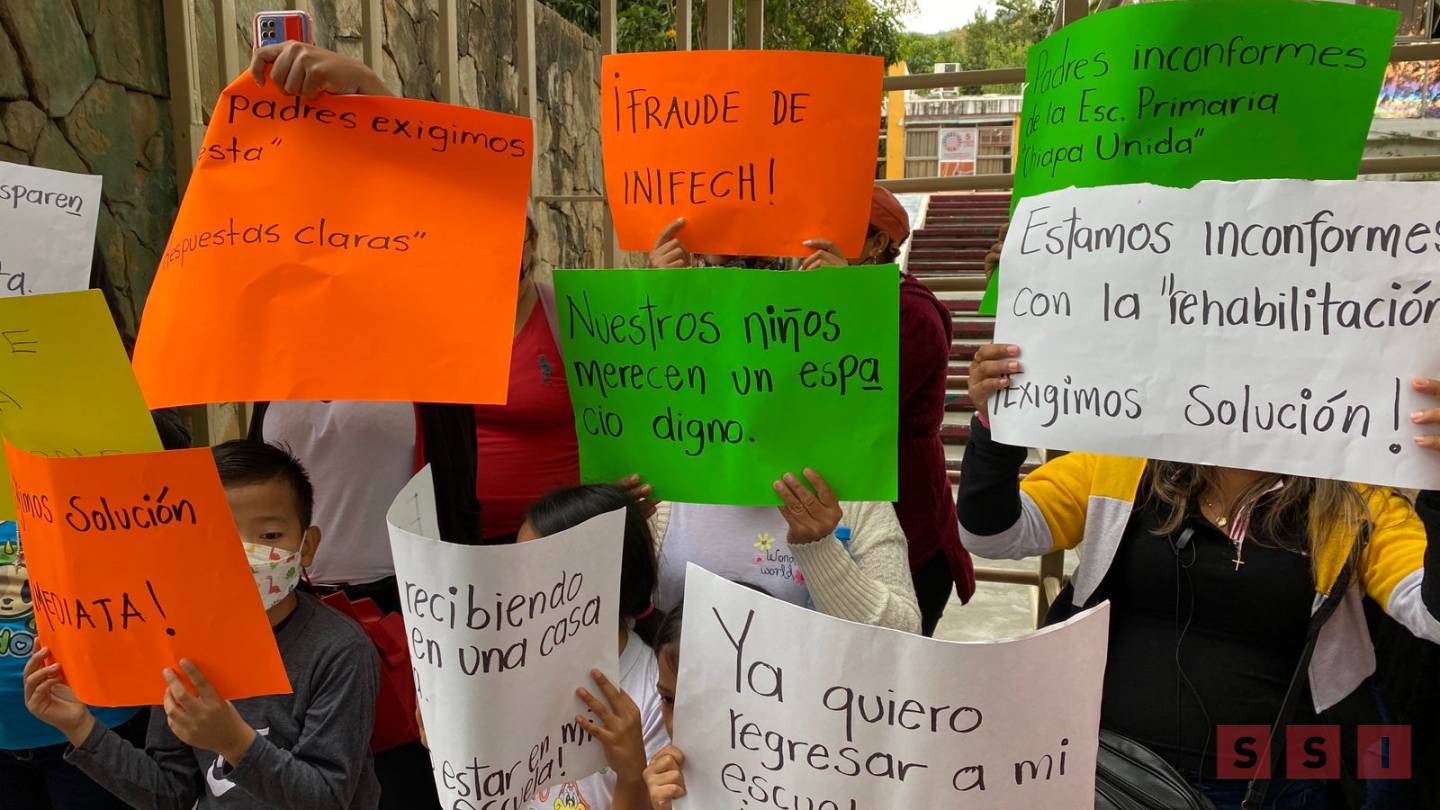 sparen
ta.
Padres exigimos
esta"
respuestas claras"
¡FRAUDE DE
INIFECH!
Padres inconformes
de la Esc. Primaria
"Chiapa Unida"
Estamos inconformes
con la "rehabilitación
¡Exigimos Solución!
Nuestros niños
merecen un espa
cio digno.
E
A
imos Solución
MEDIATA!
recibiendo
en una casa
a.
estar en mi
escuela!
Ya quiero
regresar a mi
escuel
Wond
world
SSI